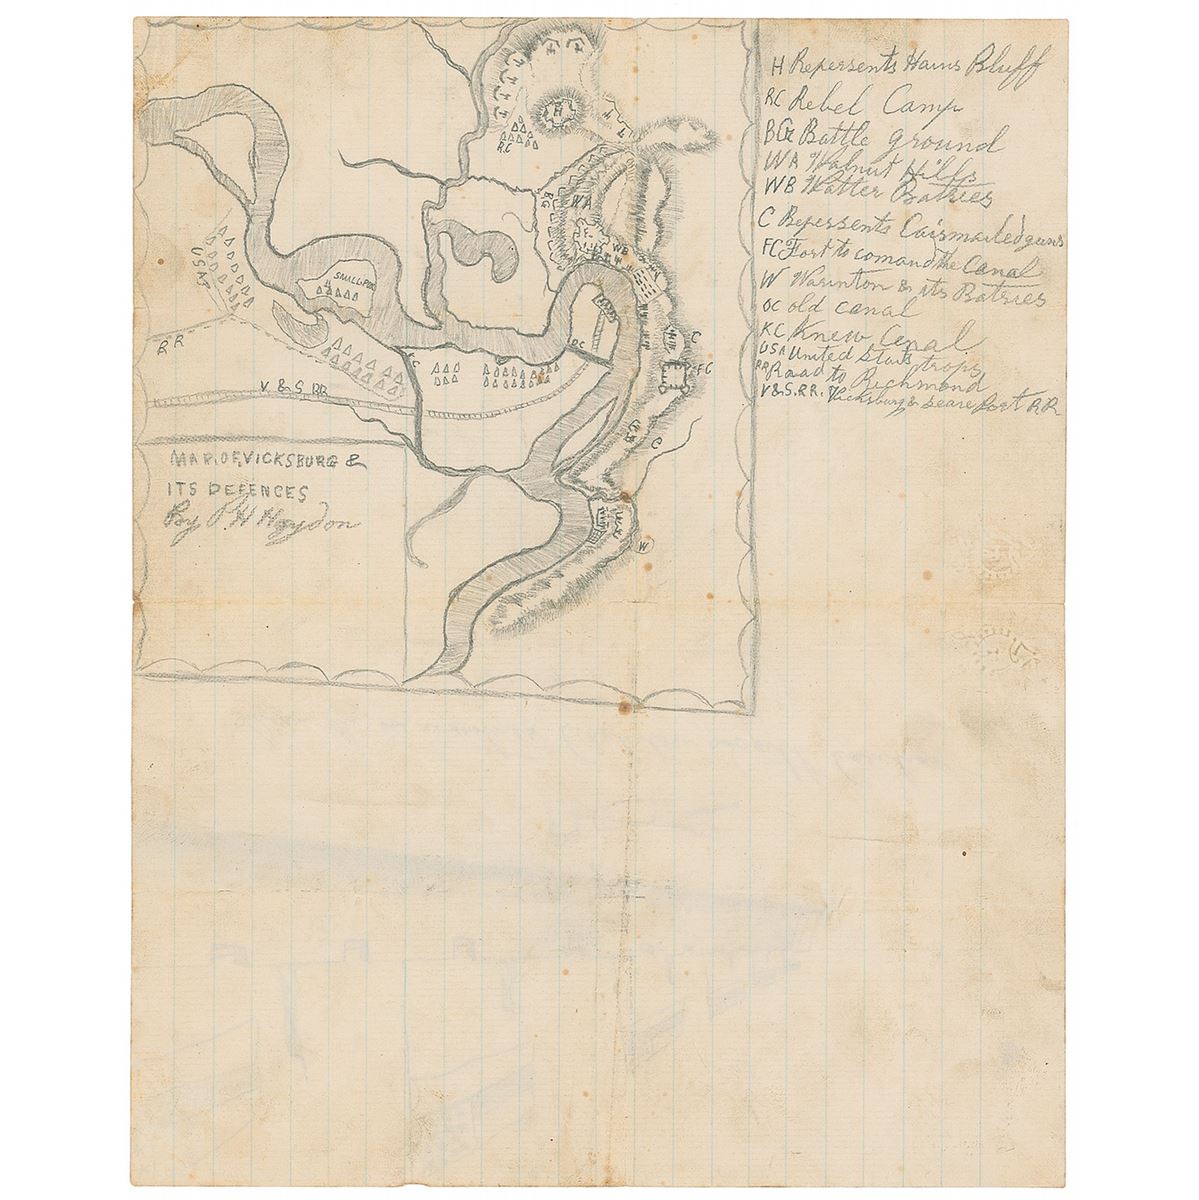 H Repersents Hains Bluff
RC Rebel Camp
BG Battle ground
WA Walnut Hills
WB Watter Batries
C Repersents Caismaited guns
FC Fort to comand the Canal
W Warinton & its Batries
OC old canal
KC Knew Cenal
USA United Stats trops
RR Road to Richmond
V&S.RR. Vicksburg & Seare Port RR
H
R.C
BG
WA
WB
F
USAT
SMALLPOX
RR
V & S RR
KC
OC
C
FC
WB
C
W
MAP.OF.VICKSBURG &
ITS DEFENCES
By P H Haydon